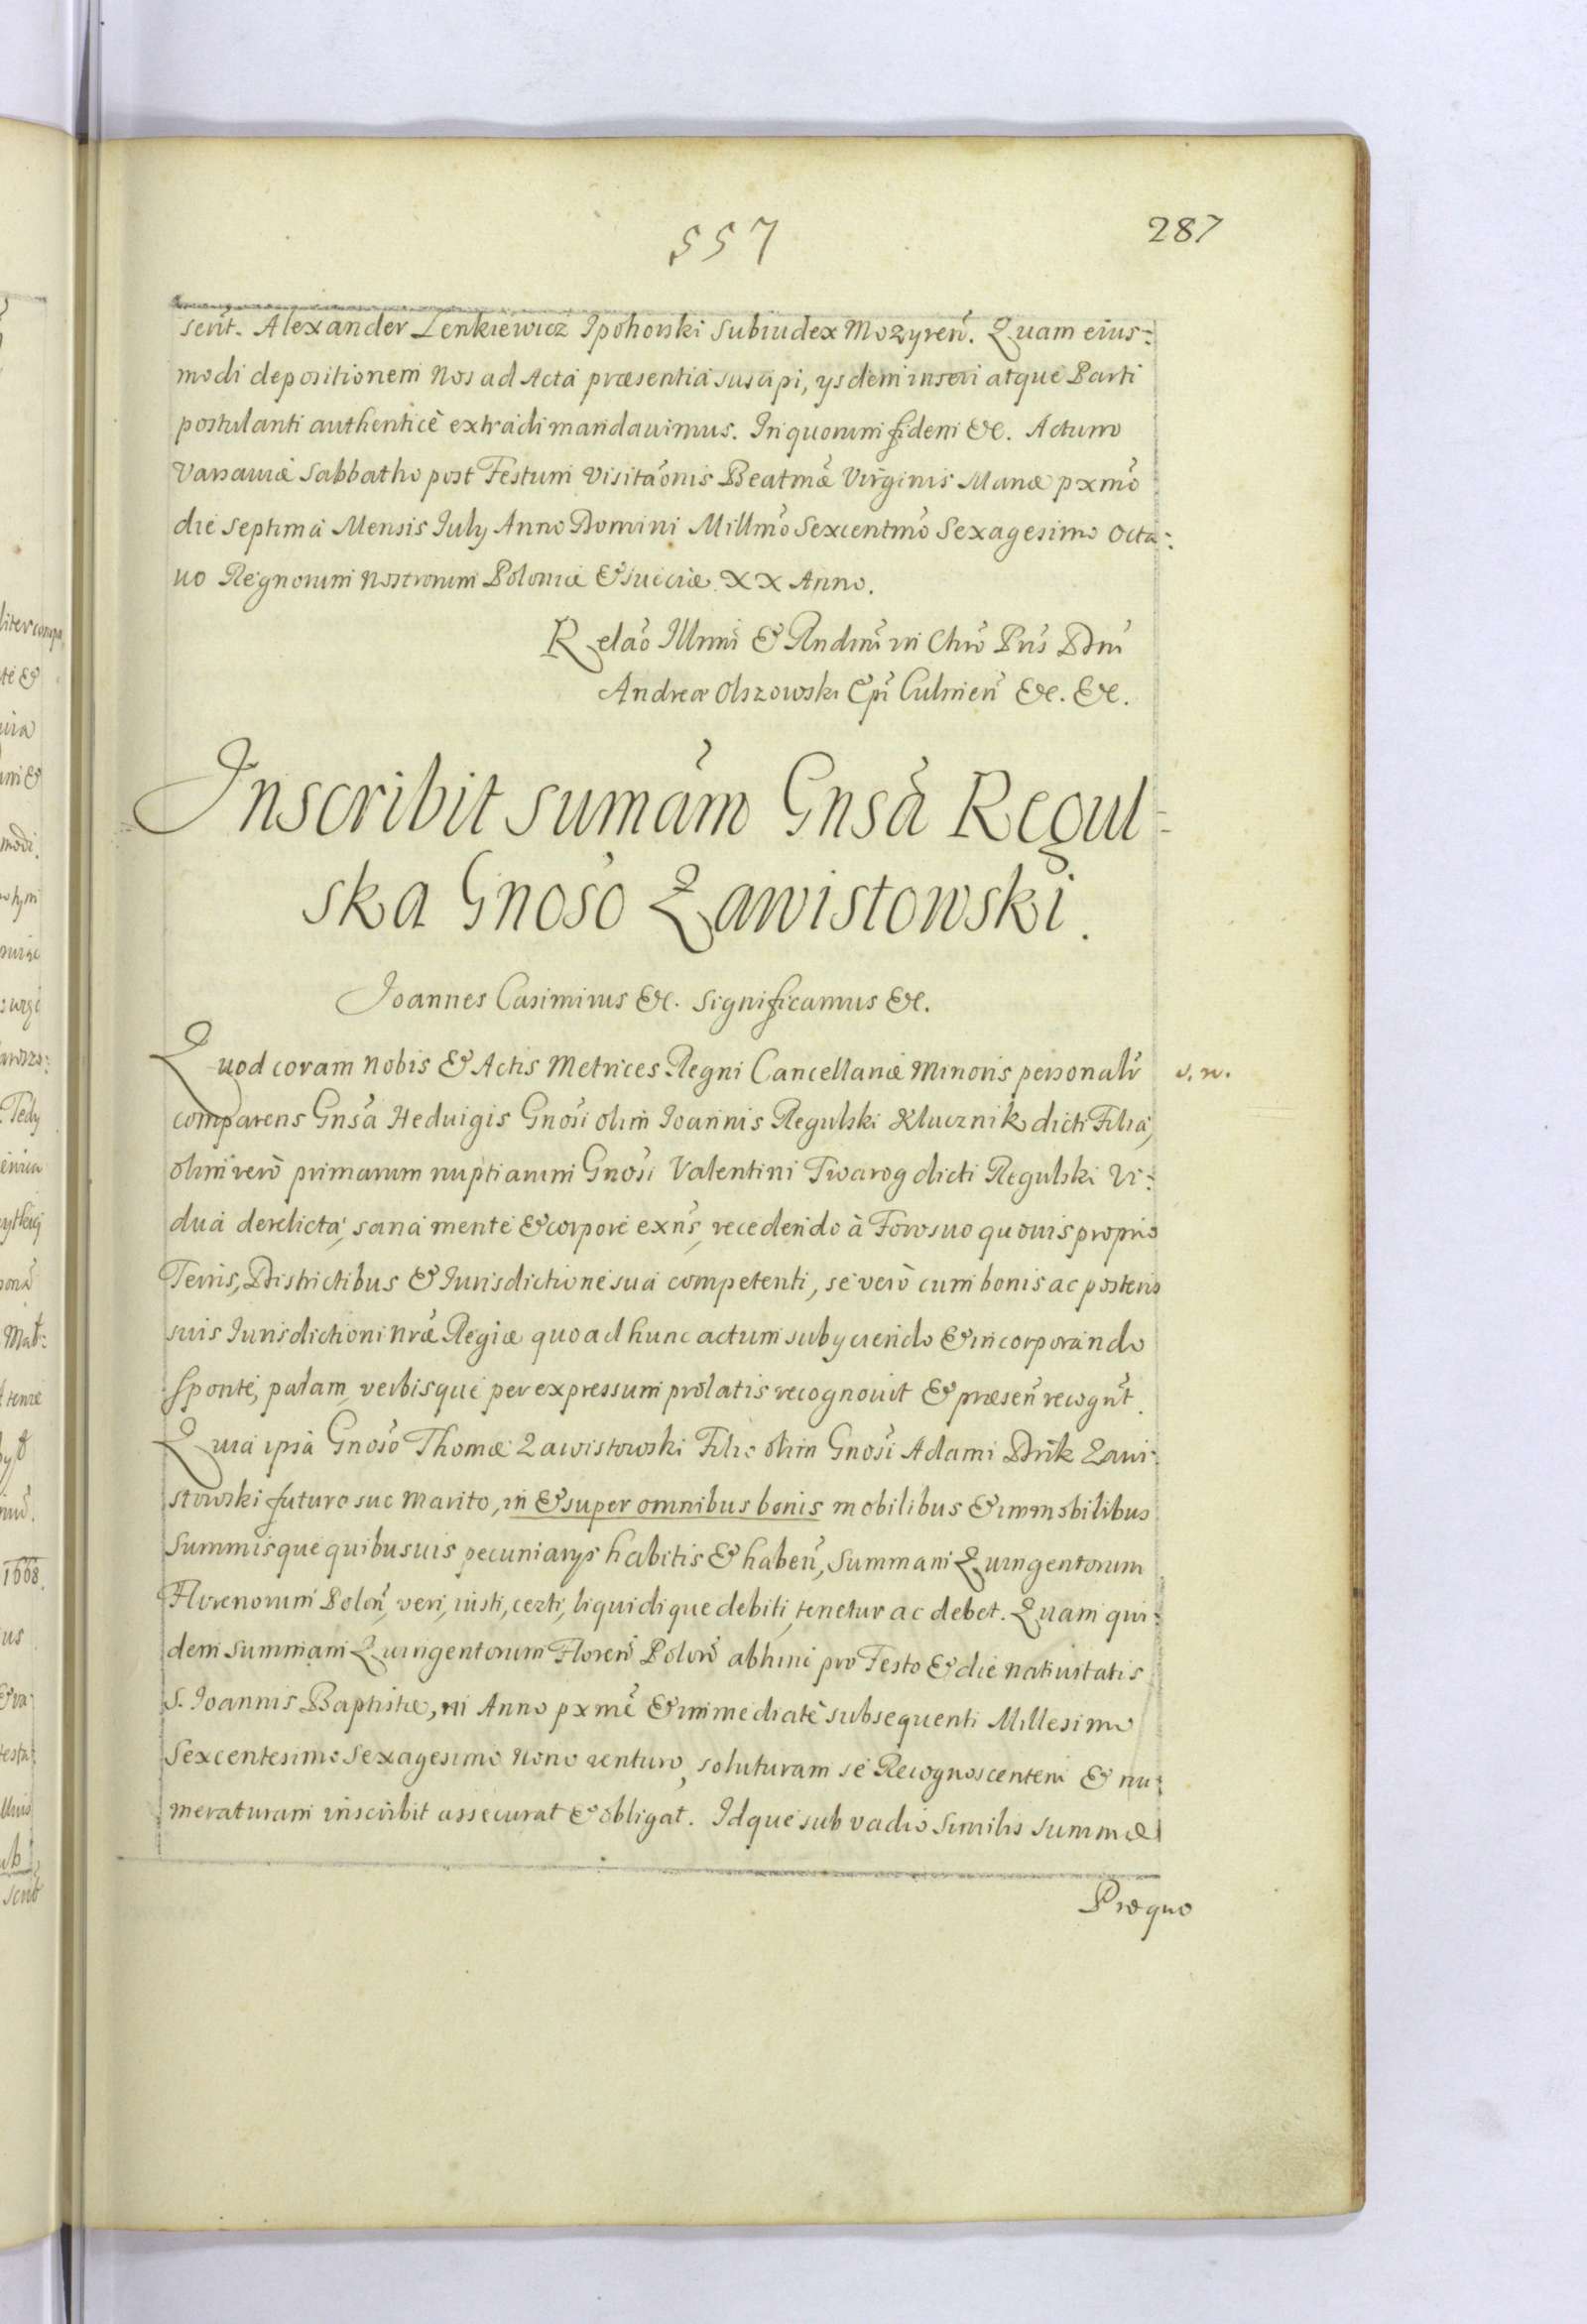 557
287
scrít. Alexander Lenkiewicz Ipohorski Subiudex Mozyreń. Quam eius=
modi depositionem Nos ad Acta præsentia suscipi, ysdem inseri atque Parti
postulanti authenticè extradi mandavimus. In quorum fidem &c. Actum
Varsaviæ Sabbatho post Festum Visitaõnis Beatmæ Virginis Mariæ pxmõ
die septima Mensis July Anno Domini Millmõ Sexcentmõ Sexagesimo Octa=
uo Regnorum Nostrorum Poloniæ & Sueciæ XX Anno.
Relaõ Illmi & Rndmi in Chro Pris Dni
Andreæ Olszowski Epi Culmeń &c. &c.
Inscribit sumam Gnsa Regul=
ska Gnoso Zawistowski.
Joannes Casimirus &c. Significamus &c.
Quod coram Nobis & Actis Metrices Regni Cancellariæ Minoris personalr
s. n.
comparens Gnsa Heduigis Gnosi olim Joannis Regulski Klucznik dicti Filia,
olim verò primarum nuptiarum Gnosi Valentini Twarog dicti Regulski Vi=
dua derelicta, sana mente & corpore exns, recedendo à Foro suo quouis proprio
Terris, Districtibus & Jurisdictione sua competenti, se verò cum bonis ac posteris
suis Jurisdictioni Nræ Regiæ quo ad hunc actum subyciendo & incorporando
sponte, palam, verbisque per expressum prolatis recognouit & præseń recogńt.
Quia ipsa Gnoso Thomæ Zawistowski Filio olim Gnosi Adami Drik Zawi=
stowski futuro suo Marito, in & super omnibus bonis mobilibus & immobilibus
Summisque quibusuis pecuniarys habitis & habeń, Summam Quingentorum
Florenorum Poloń, veri, iusti, certi, liquidique debiti, tenetur ac debet. Quam qui=
dem summam Quingentorum Floreń Poloń abhinc pro Festo & die Natiuitatis
S. Joannis Baptistæ, in Anno pxmè & immediatè subsequenti Millesimo
Sexcentesimo Sexagesimo Nono venturo, soluturam se Recognoscentem & nu=
meraturam inscribit assecurat & obligat. Idque sub vadio similis summæ
Pro quo